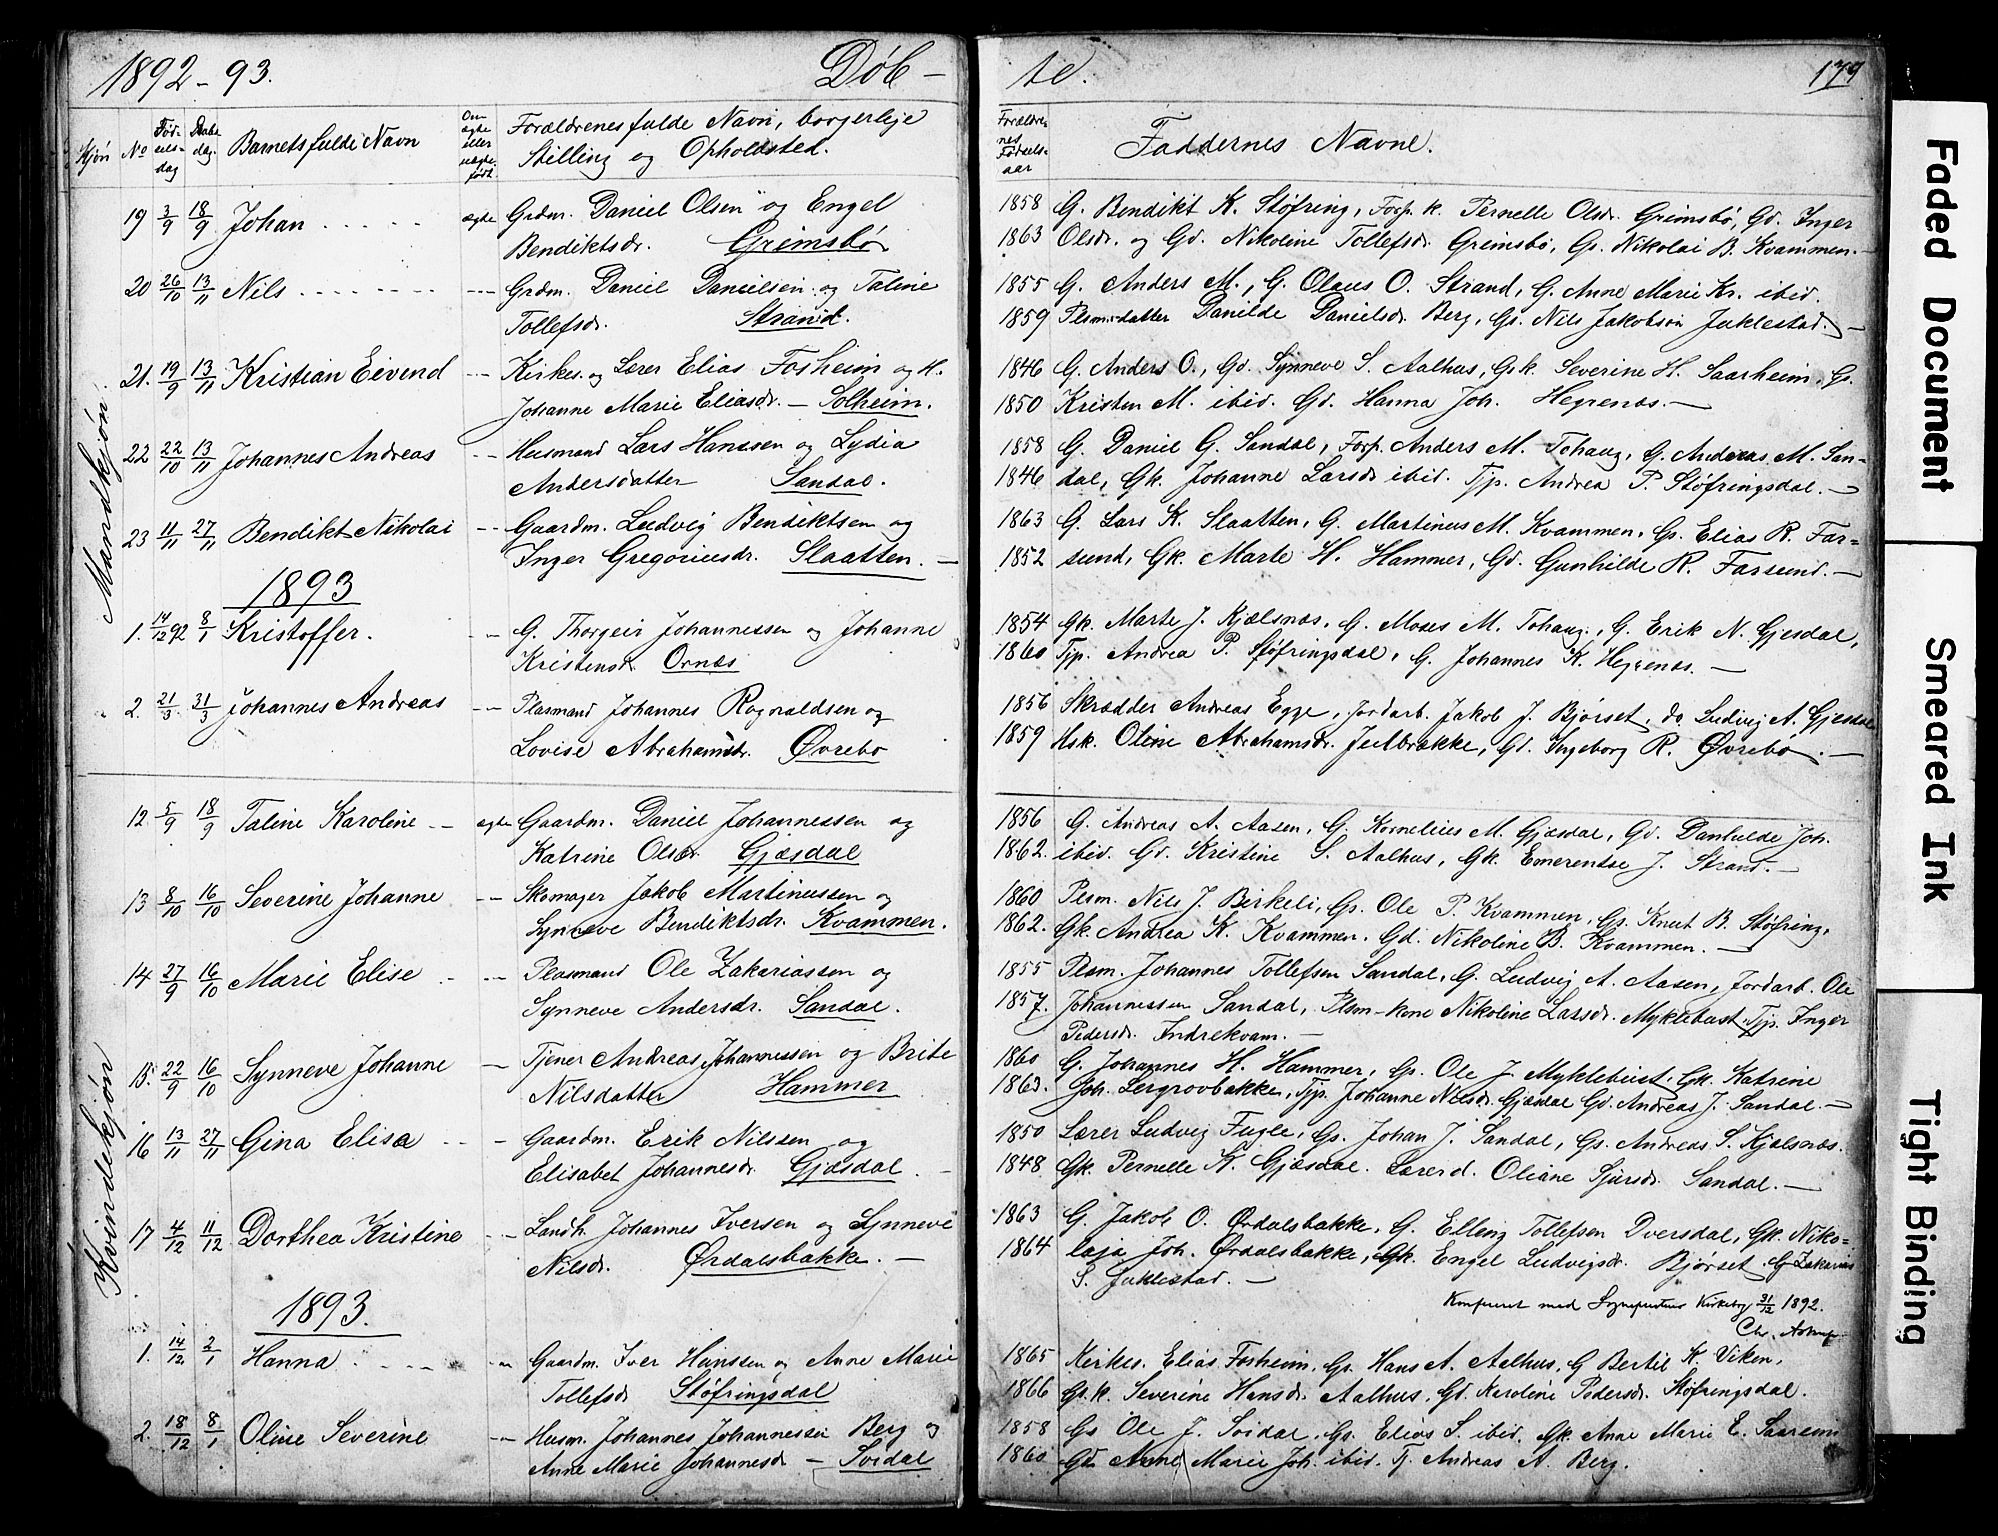 1892-93. Døb-
Kjøn No Fødselsdag Daabsdag Barnets fulde Navn Om ægte eller uægte født Forældrenes fulde Navn, borgerlige
Stilling og Opholdsted.
Mandkjøn.
19 3/9 18/9 Johan .... ægte Grdm. Daniel Olsen og Engel
Bendiktsdr. Grimsbø
20 26/10 13/11 Nils ------- --- Grdm. Daniel Danielsen og Taline
Tollefsdr. Strand.
21. 19/9 13/11 Kristian Eivend --- Kirkes. og Lærer Elias Fosheim og H.
Johanne Marie Eliasdr. — Solheim.
22 22/10 13/11 Johannes Andreas -- Husmand Lars Hanssen og Lydia
Andersdatter Sandal.
23 11/11 27/11 Bendikt Nikolai -- Gaardm. Ludvig Bendiktsen og
Inger Gregoriusdr. Slaatten. —
1893
1. 14/12 92 8/1 Kristoffer. -- G. Thorgeir Johannessen og Johanne
Kristensdr. Ornæs
2. 21/3. 31/3 Johannes Andreas -- Plasmand Johannes Ragnvaldsen og
Lovise Abrahamsdr. Øvrebø
Kvindekjøn
12. 5/9 18/9 Taline Karoline -- ægte Gaardm. Daniel Johannessen og
Katrine Olsdr. Gjæsdal
13 8/10 16/10 Severine Johanne -- Skomager Jakob Martinussen og
Synneve Bendiktsdr. Kvammen.
14 27/9 16/10 Marie Elise - -- Plasmand Ole Zakariassen og
Synneve Andersdr. Sandal.
15. 22/9 16/10 Synneve Johanne -- Tjener Andreas Johannessen og Brite
Nilsdatter Hammer
16 13/11 27/11 Gina Elisa -- - Gaardm. Erik Nilssen og
Elisabet Johannesdr. Gjæsdal. -
17 4/12 11/12 Dorthea Kristine -- Landh. Johannes Iversen og Synneve
Nilsdr. Ørdalsbakke. —
1893.
1. 14/12 2/1 Hanna .---- -- Gaardm. Iver Hanssen og Anne Marie
Tollefsdr Støfringsdal
2. 18/12 8/1 Oline Severine -- Husm. Johannes Johannessen Berg og
Anne Marie Johannesdr — Soidal
te. 179
Forældrenes Fødselsaar Faddernes Navne.
1858 G. Bendikt K. Støfring, Forp. k. Pernelle Olsdr. Grimsbø, Gd. Inger
1863 Olsdr. og Gd. Nikoline Tollefsdr. Grimsbø, Gs. Nikolai B. Kvammen. -
1855 G. Anders M., G. Olaus O. Strand, G. Anne Marie Kr. ibid.
1859 Plsm.-datter Danilde Danielsdr. Berg, Gs. Nils Jakobson Juklestad. —
1846 G. Anders O., Gd. Synneve S. Aalhus, Gsk. Severine H. Saarheim, Gs.
1850 Kristen M. ibid. Gd. Hanna Joh. Hegrenæs. —
1858 G. Daniel G. Sandal, Forp. Anders M. Tohaug, G. Andreas M. San=
1846 dal, Gk. Johanne Larsdr ibid. Tjp. Andrea P. Støfringsdal. —
1863 G. Lars K. Slaatten, G. Martinus M. Kvammen, Gs. Elias R. Far=
1852 sund, Gk. Marte H. Hammer, Gd. Gunhilde R. Farsund. —
1854 Gk. Marte J. Kjælsnæs, G. Moses M. Tohaug, G. Erik N. Gjesdal,
1860 Tjp. Andrea P. Støfringsdal, G. Johannes K. Hegrenæs. —
1856 Skrædder Andreas Egge, Jordarb. Jakob J. Bjørset, do Ludvig A. Gjesdal
1859 Hsk. Oline Abrahamsdr. Julbrække, Gd. Ingeborg R. Øvrebø. —
1856 G. Andreas A. Aasen, G. Kornelius M. Gjæsdal, Gd. Danhilde Joh.
1862. ibid. Gd. Kristine S. Aalhus, Gk. Emerentse J. Strand. —
1860 Plsm. Nils J. Birkeli, Gs. Ole P. Kvammen, Gs. Knut B. Støfring,
1862. Gk. Andrea K. Kvammen. Gd. Nikoline B. Kvammen. —
1855 Plsm. Johannes Tollefsen Sandal, G. Ludvig A. Aasen, Jordarb. Ole
1857. Johannessen Sandal, Plsm-kone Nikoline Larsdr. Myklebust, Tjp. Inger
Pedersdr. Indrekvam. —
1860 G. Johannes H. Hammer, Gs. Ole J. Myklebust, Gk. Katrine
1863. Joh. Lergrovbakke, Tjp. Johanne Nilsdr. Gjæsdal Gd. Andreas J. Sandal. —
1850 Lærer Ludvig Fugle, Gs. Johan J. Sandal, Gs. Andreas S. Kjælsnæs.
1848. Gk. Pernelle K. Gjæsdal. Lærerd. Oliane Sjursdr. Sandal. —
1863 G. Jakob O. Ørdalsbakke, G. Elling Tollefsen Dversdal, Gk. Niko=
1864 laja Joh. Ørdalsbakke, Gk. Engel Ludvigsdr. Bjørset. G Zakarias
S. Juklestad. —
Konfereret med Sognepræstens Kirkebog 31/12 1892.
Chr.
1865 Kirkes. Elias Fosheim, Gs. Hans A. Aalhus, G Bertil K. Viken,
1866 Gs.k. Severine Hansdr. Aalhus, Gd. Karoline Pedersdr. Støfringsdal.
1858 Gs Ole J. Soidal, Gs. Elias S. ibid. Gk. Anne Marie E. Saareim
1860 Gd Anne Marie Joh. ibid. Tj. Andreas A. Berg.
Faded Document
Smeared Ink
Tight Binding